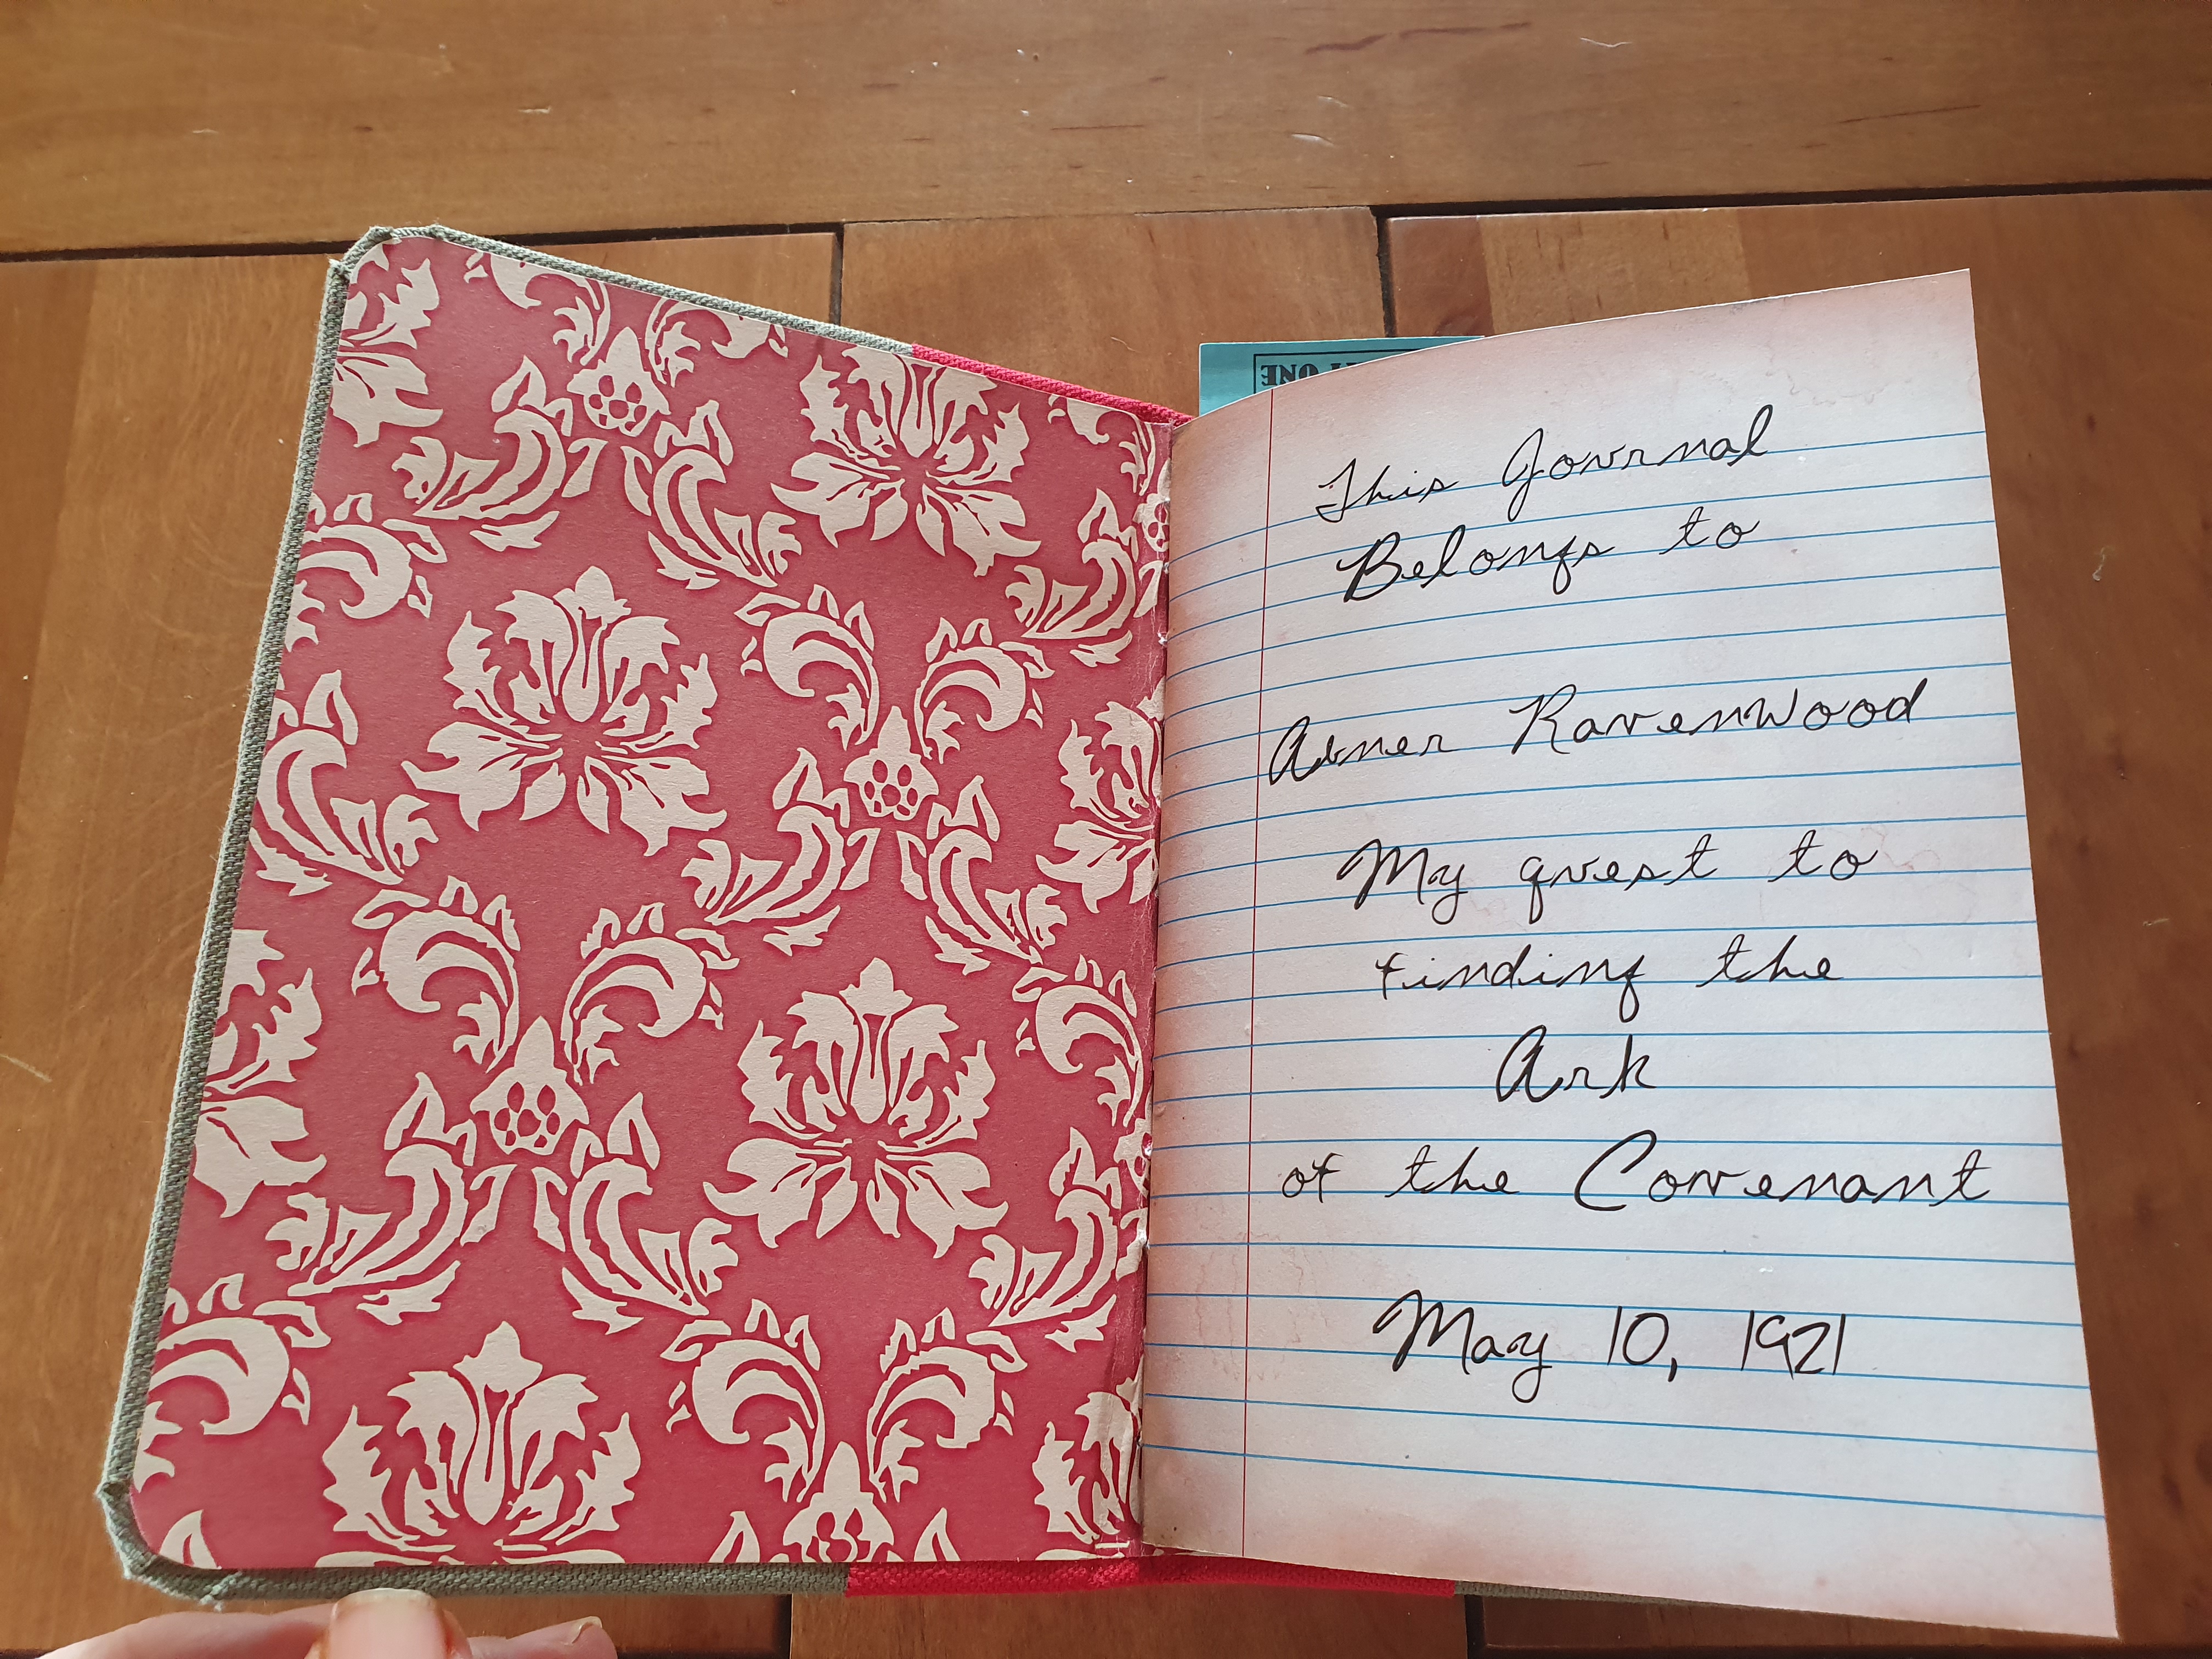 ST ONE
This Journal
Belongs to
Abner Ravenwood
My quest to
finding the
Ark
of the Covenant
May 10, 1921